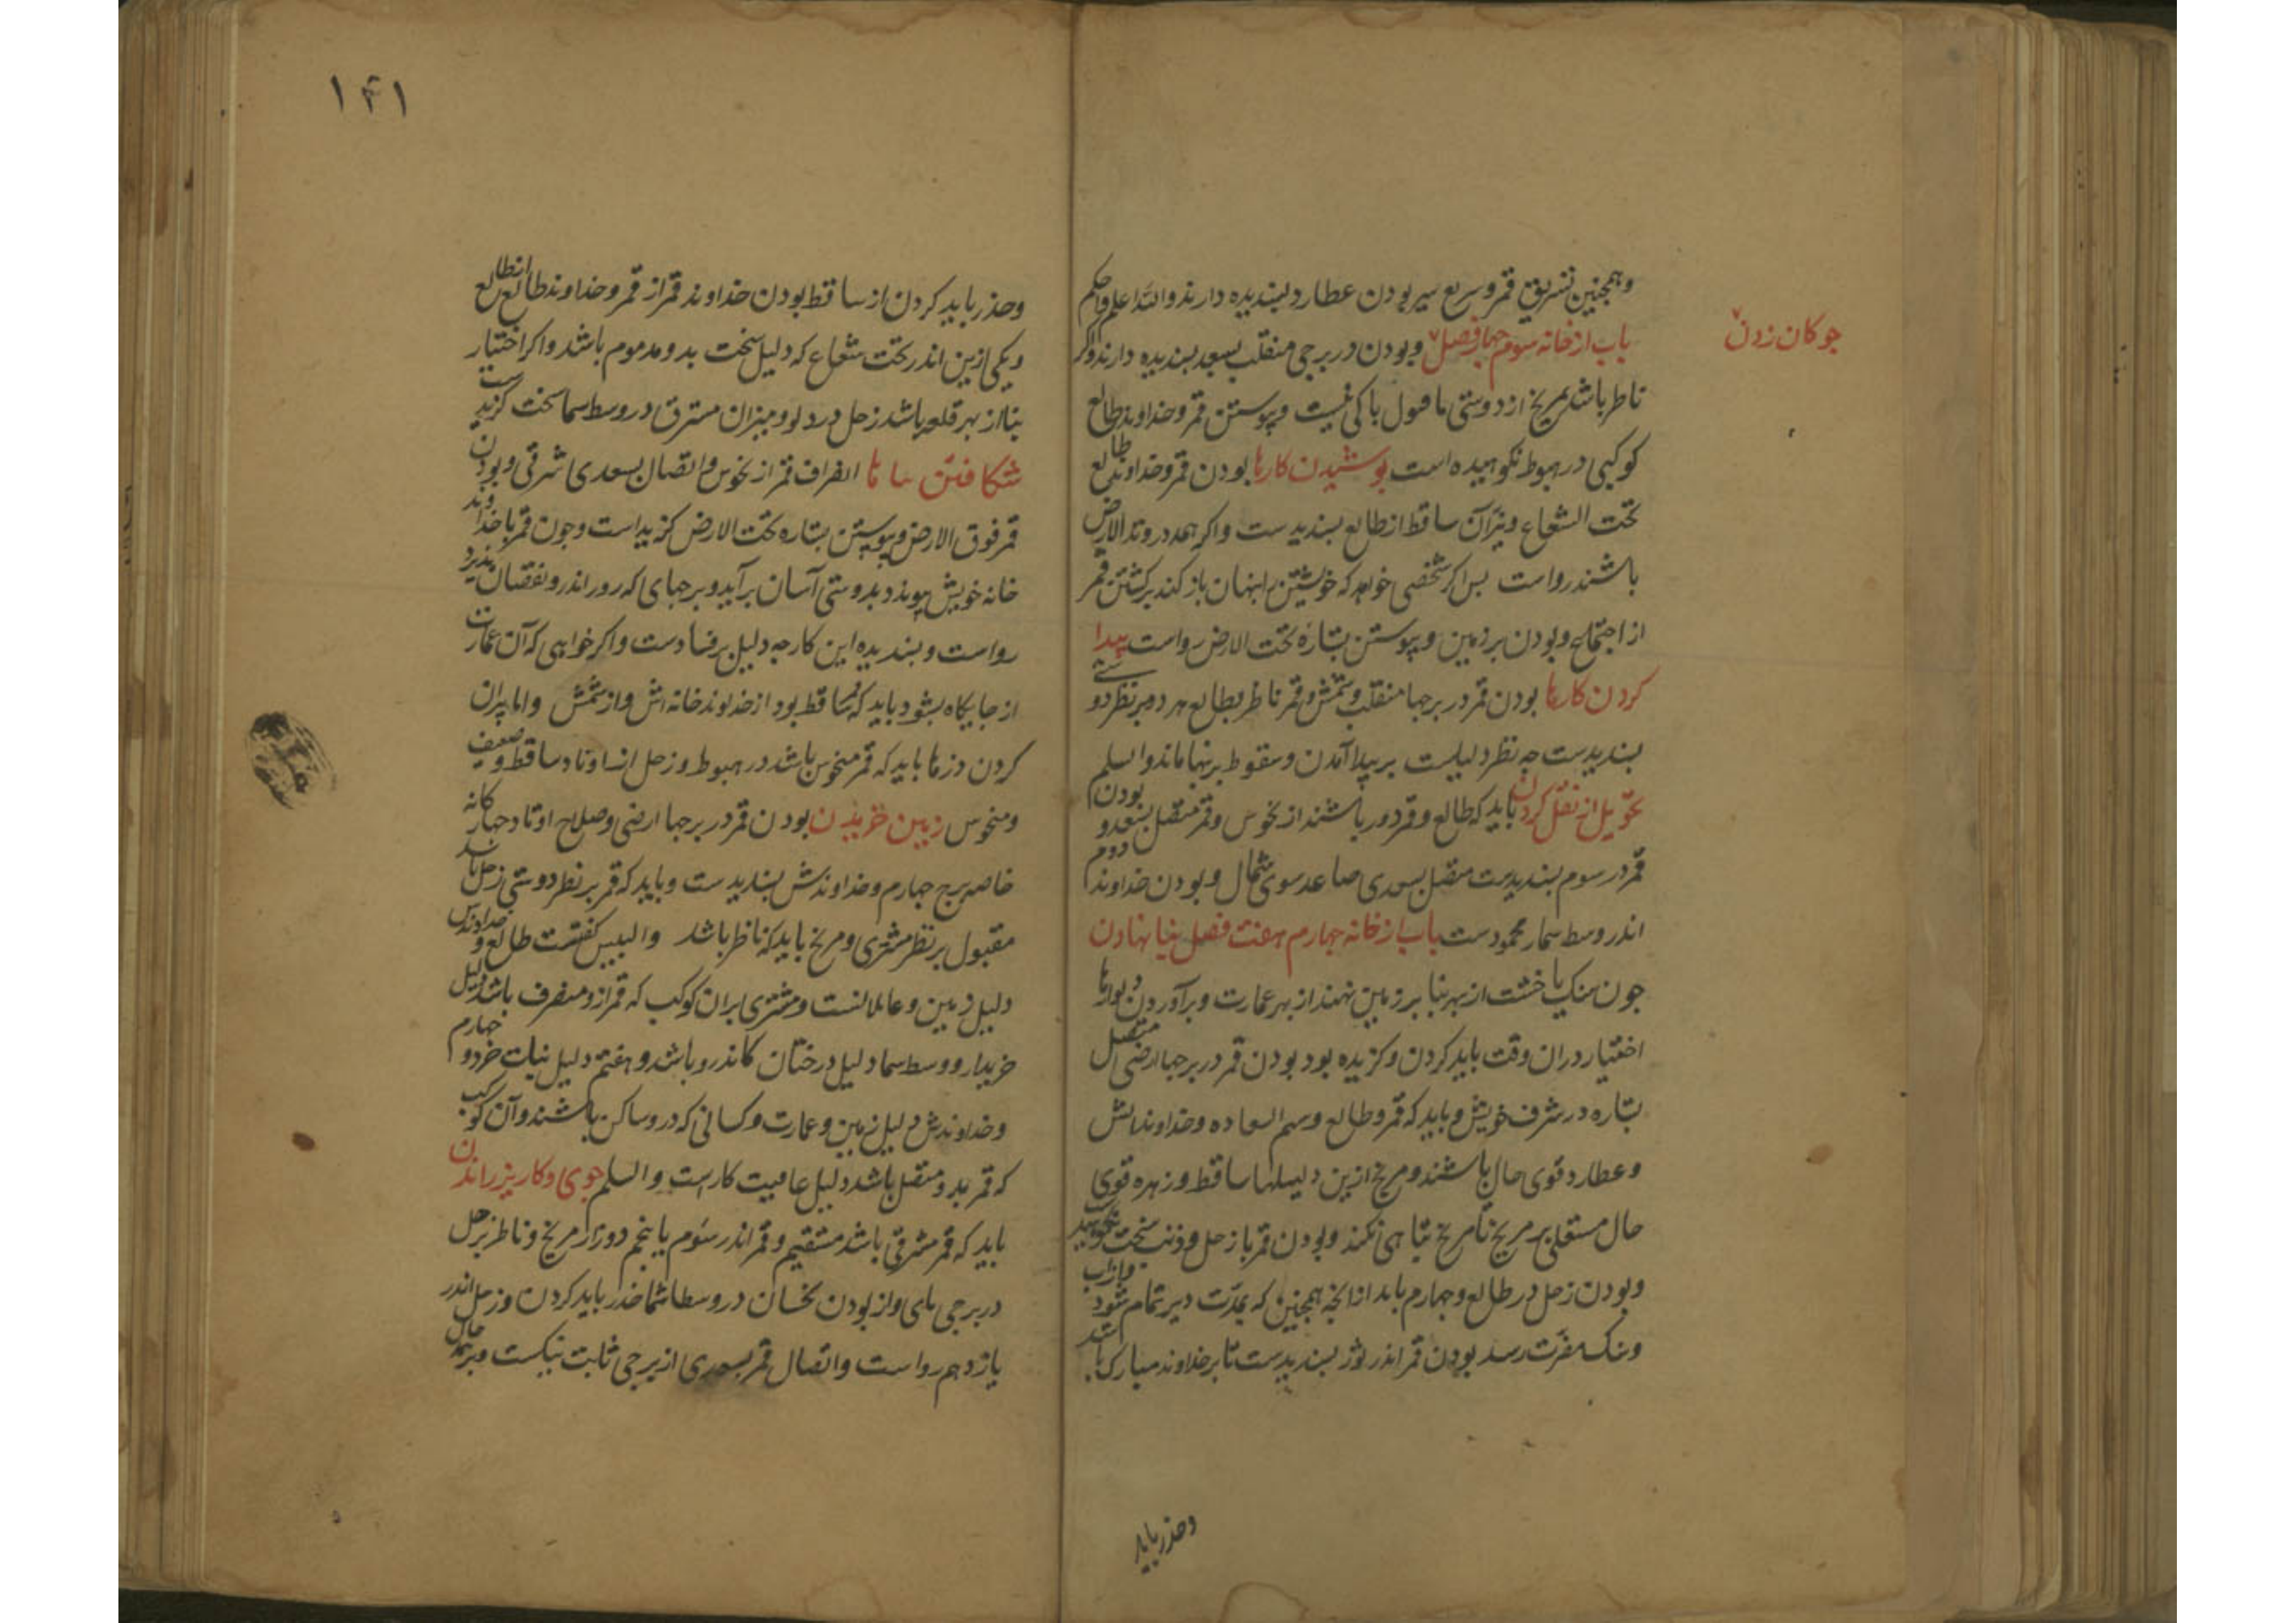 وهمچنین تشریق قمر و سریع سیر بودن عطارد پسندیده دارند والله اعلم واحکم
چوکان زدن
باب از خانه سوم چهار فصل وبودن در برجی منقلب بسعد پسندیده دارند واکر
ناظر باشد بمریخ از دوستی ما قبول باکی نیست وپیوستن قمر وخداوند طالع
کوکبی در هبوط نکوهیده است پوشیدن کارها بودن قمر وخداوند طالع
تحت الشعاع ونیرّان ساقط از طالع پسندیدست واکر همه در وتد الارض
باشند رواست پس اکر شخصی خواهد که خویشتن را پنهان باز کند برکشتن قمر
از اجتماع وبودن بر زمین وپیوستن بستاره تحت الارض رواست پیدا
کردن کارها بودن قمر در برجها منقلب وشمس وقمر ناظر بطالع هر دو بر نظر دوستی
پسندیدست چه نظر دلیلست بر پیدا آمدن وسقوط بر پنها ماند والسلم
تحویل از نقل کردن باید که طالع وقمر دور باشند از نحوس وقمر متصل بسعد وبودن
قمر در سوم پسندیدست متصل بسعدی صاعد سوی شمال وبودن خداوند دوم
اندر وسط سما محمودست باب از خانه چهارم هفت فصل بنیا نهادن
چون سنک یا خشت از بهر بنا بر زمین نهند از بهر عمارت وبرآوردن دیوارها
اختیار در ان وقت باید کردن وکزیده بود بودن قمر در برجها ارضی متصل
بستاره در شرف خویش وباید که قمر وطالع وسهم السعاده وخداوندانش
وعطارد قوی حال باشند ومریخ ازین دلیلها ساقط وزهره قوی
حال مستعلی بر مریخ تا مریخ تباهی نکند وبودن قمر با زحل وذنب سخت نکوهید
وبودن زحل در طالع وچهارم باید از انچه همچنین که بمدّت دیر تمام شود
وسنک مضرّت رسد بودن قمر اندر ثور پسندیدست تا بر خداوند مبارک باشد
وحذر باید
۱۴۱
وحذر باید کردن از ساقط بودن خداوند قمر از قمر وخداوند طالع از طالع
ویکی ازین اندر تحت شعاع که دلیل سخت بد ومذموم باشد واکر اختیار
بنا از بهر قلعه باشد زحل در دلو ومیزان مشرق در وسط سما سخت کزیدست
شکافتن بناها انصراف قمر از نحوس واتصال بسعدی شرقی وبودن
قمر فوق الارض وپیوستن بستاره تحت الارض کزیداست وچون قمر با خداوند
خانه خویش پیوندد بدوستی آسان برآید وبرجهای که روز اندرو نقصان پذیرد
رواست وپسندیده این کار چه دلیل بر فسادست واکر خواهی که آن عمارت
از جایکاه بشود باید که قمر ساقط بود از خداوند خانه اش واز شمس واما ویران
کردن دزها باید که قمر منحوس باشد در هبوط وزحل از اوتاد ساقط وضعیف
ومنحوس زمین خریدن بودن قمر در برجها ارضی وصلاح اوتاد چهارکانه
خاصه برج چهارم وخداوندش پسندیدست وباید که قمر بر نظر دوستی زحل باشد
مقبول بر نظر مشتری ومریخ باید که ناظر باشد والبیس کفتست طالع وخداوندش
دلیل زمین وعاملانست ومشتری بران کوکب که قمر ازو منصرف باشد دلیل
خریدار ووسط سما دلیل درختان کاندرو باشد وهفتم دلیل نبات خرد وچهارم
وخداوندش دلیل زمین وعمارت وکسانی که درو ساکن باشند وآن کوکب
که قمر بدو متصل باشد دلیل عاقبت کارست والسلم جوی وکاریز راندن
باید که قمر مشرقی باشد مستقیم وقمر اندر سوم یا پنجم دور از مریخ وناظر بزحل
در برجی مای واز بودن نحسان در وسط سما حذر باید کردن وزحل اندر
یازدهم رواست واتصال قمر بسعدی از برجی ثابت نیکست